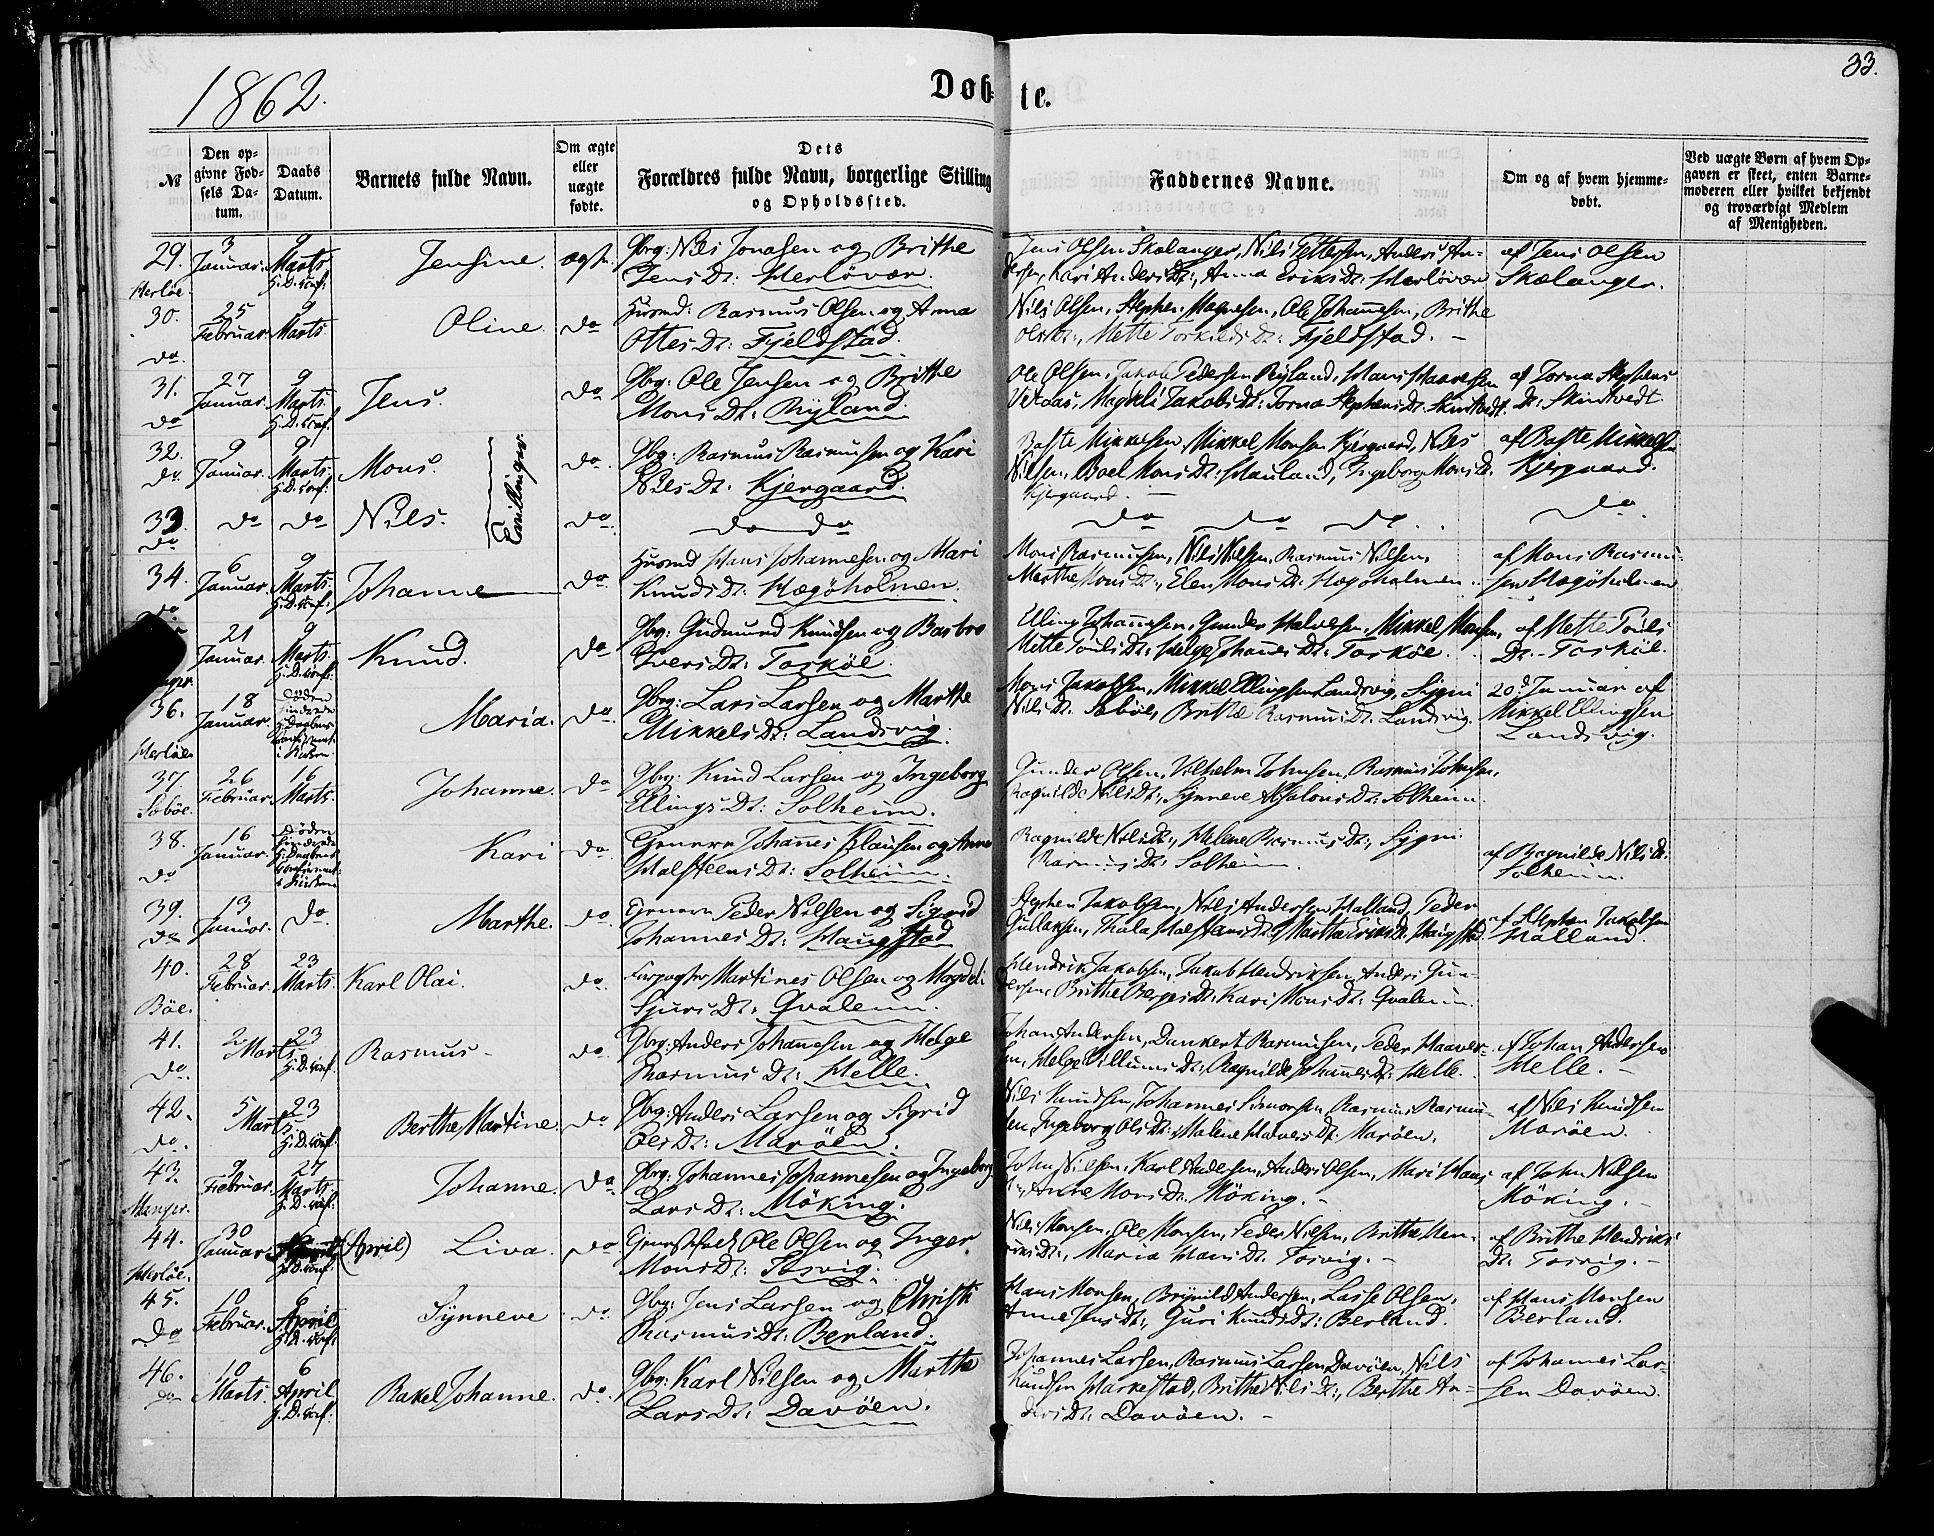 1862.
Døbte.
33.
№
Den opgivne Fødsels Datum.
Daabs Datum.
Barnets fulde Navn.
Om ægte eller uægte fødte.
Dets Forældres fulde Navn, borgerlige Stilling og Opholdssted.
Faddernes Navne.
Om og af hvem hjemmedøbt.
Ved uægte Børn af hvem Opgaven er skeet, enten Barnemoderen eller hvilket bekjendt og troværdigt Medlem af Menigheden.
29. 3 Januar. 9 Marts Jensine. ægte. Gbrg: Nils Jonasen og Brithe
Herløe. H.D. conf: Jens Dt: Herløvær.
Jens Olsen Skælanger, Nils Pettersen, Anders An-
dersen, Kari Anders Dt:, Anna Eriks Dt: Herløvær
af Jens Olsen
Skælanger.
30. 25 Februar. 9 Marts. Oline. do Husmd: Rasmus Olsen og Anna
do. Ottes Dt: Fjeldstad.
Nils Olsen, Stephen Magnesen, Ole Johannesen, Brithe
Ols Dt:, Mette Torkilds Dt: Fjeldstad. –
31. 27 Januar. 9 Marts. Jens. do. Gbrg: Ole Jensen og Brithe
do H.D. conf. Mons Dt: Ryland.
Ole Olsen, Jakob Pedersen Ryland, Hans Haavesen
Vetaas, Magdeli Jakobs Dt: Torna Stephens Dt. Skintvedt.
af Torna Stephens
Dt: Skintvedt.
32. 9 Januar. 9 Marts. Mons. do. Gbrg: Rasmus Rasmussen og Kari
do. H.D. conf: Nils Dt: Kjergaard.
Tvillinger.
Baste Mikkelsen, Mikkel Monsen Kjergaard, Nils
Nilsen, Boel Mons Dt: Hauland, Ingeborg Mons Dt.
Kjergaard. –
af Baste Mikkelsen
Kjergaard.
33. do do Nils. do. do do
do
do do do.
do.
34. 6 Januar. 9 Marts. Johanne do. Husmd Hans Johannesen og Mari
do H.D. conf: Knuds Dt: Hægøholmen.
Mons Rasmussen, Nils Nilsen, Rasmus Nilsen,
Marthe Mons Dt:, Elen Mons Dt: Hægøholmen.
af Mons Rasmus-
sen Hægøholmen
21 Januar. 9 Marts. Knud. do Gbrg: Gudmund Knudsen og Barbro
H.D. conf: Ivers Dt: Toskøe.
Elling Johannesen, Gunder Halvorsen, Mikkel Monsen,
Mette Pouls Dt: Helge Johannes Dt: Toskøe.
af Mette Pouls
Dt. Toskøe.
36. 18 Januar. Døden hindrede Daabens conf. i Kirken Maria. do. Gbrg: Lars Larsen og Marthe
Herløe Mikkels Dt: Landsvig.
Mons Jakobsen, Mikkel Ellingsen Landsvig, Signi
Nils Dt. Sæbøe, Brithe Rasmus Dt: Landsvig.
20d Januar af
Mikkel Ellingsen
Landsvig.
37. 26 Februar. 16 Marts. Johanne. do Gbrg: Knud Larsen og Ingeborg
Sæbøe. Ellings Dt: Solheim.
Gunder Olsen, Vilhelm Johnsen, Rasmus Johnsen,
Ragnilde Nils Dt:, Synneve Absalons Dt: Solheim.
38. 16 Januar. Døden hindrede Daabens i Kirken Kari do. Johannes Klausen og Anna
do Halsteens Dt: Solheim.
Ragnilde Nils Dt:, Helene Rasmus Dt:, Sygni
Rasmus Dt: Solheim.
af Ragnilde Nils Dt.
Solheim.
39. 13 Januar. do. Marthe. do. Peder Nilsen og Sigrid
do Johannes Dt: Haugstad
Stephen Jakobsen, Nils Andersen Halland, Peder
Gullaksen, Marthe Eriks Dt. Haugstad
af Stephen Jakobsen
Halland.
40. 28 Februar. 23 Marts. Karl Olai. do. Forpagter Martines Olsen og Magdeli
Bøe. Sjurs Dt: Qvaleim.
Hendrik Jakobsen, Jakob Hendriksen, Anders Gun-
dersen, Brithe Børges Dt: Kari Mons Dt: Qvaleim.
41. 2 Marts. 23 Rasmus – do. Gbrg: Anders Johannesen og Helge
do. H.D. conf. Rasmus Dt: Helle.
Johan Andersen, Dankert Rasmussen, Peder Haaver-
sen, Helge Villums Dt: Ragnilde Johannes Dt: Helle.
af Johan Andersen
Helle. –
42. 5 Marts. 23 Berthe Martine. do Gbrg: Anders Larsen og Sigrid
do. H.D. conf: Ols Dt: Marøen.
Nils Knudsen, Johannes Simonsen, Rasmus Rasmus-
sen, Ingeborg Ols Dt: Malene Halvers Dt: Marøen.
af Nils Knudsen
Marøen.
43. 9 Februar. 27 Marts. Johanne. do. Gbrg: Johannes Johannesen og Ingeborg
Manger. H.D. conf: Lars Dt: Møking.
John Nilsen, Karl Andersen, Anders Olsen, Mari Hans
Dt:, Anne Mons Dt. Møking. –
af John Nilsen
Møking. –
44. 30 Januar. (April) Liva. do Ole Olsen og Inger
Herløe. H.D. conf. Mons Dt: Tosvig.
Nils Monsen, Ole Monsen, Peder Nilsen, Brithe Hen-
riks Dt:, Maria Hans Dt: Tosvig. –
af Brithe Hendriks
Dt. Tosvig. –
45. 10 Februar. 6 April Synneve do. Gbrg: Jens Larsen og Christi
do H.D. conf: Rasmus Dt: Berland.
Hans Monsen, Brynild Andersen, Lasse Olsen,
Anne Jens Dt:, Guri Knuds Dt: Berland.
af Hans Monsen
Berland.
46. 10 Marts. 6 April Rakel Johanne. do. Gbrg: Karl Nilsen og Marthe
do H.D. conf: Lars Dt: Davøen.
Johannes Larsen, Rasmus Larsen Davøen, Nils
Knudsen Markestad, Brithe Nils Dt:, Berthe An-
ders Dt: Davøen. –
af Johannes Lar-
sen Davøen.